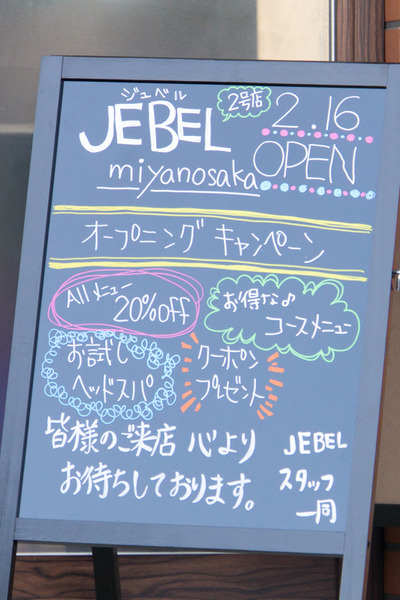 ジュベル
JEBEL
2号店
2.16
OPEN
miyanosaka
オープニング キャンペーン
Allメニュー
20%off
お得な♪
コースメニュー
お試し
ヘッドスパ
クーポン
プレゼント
皆様のご来店 心より
お待ちしております。
JEBEL
スタッフ
一同